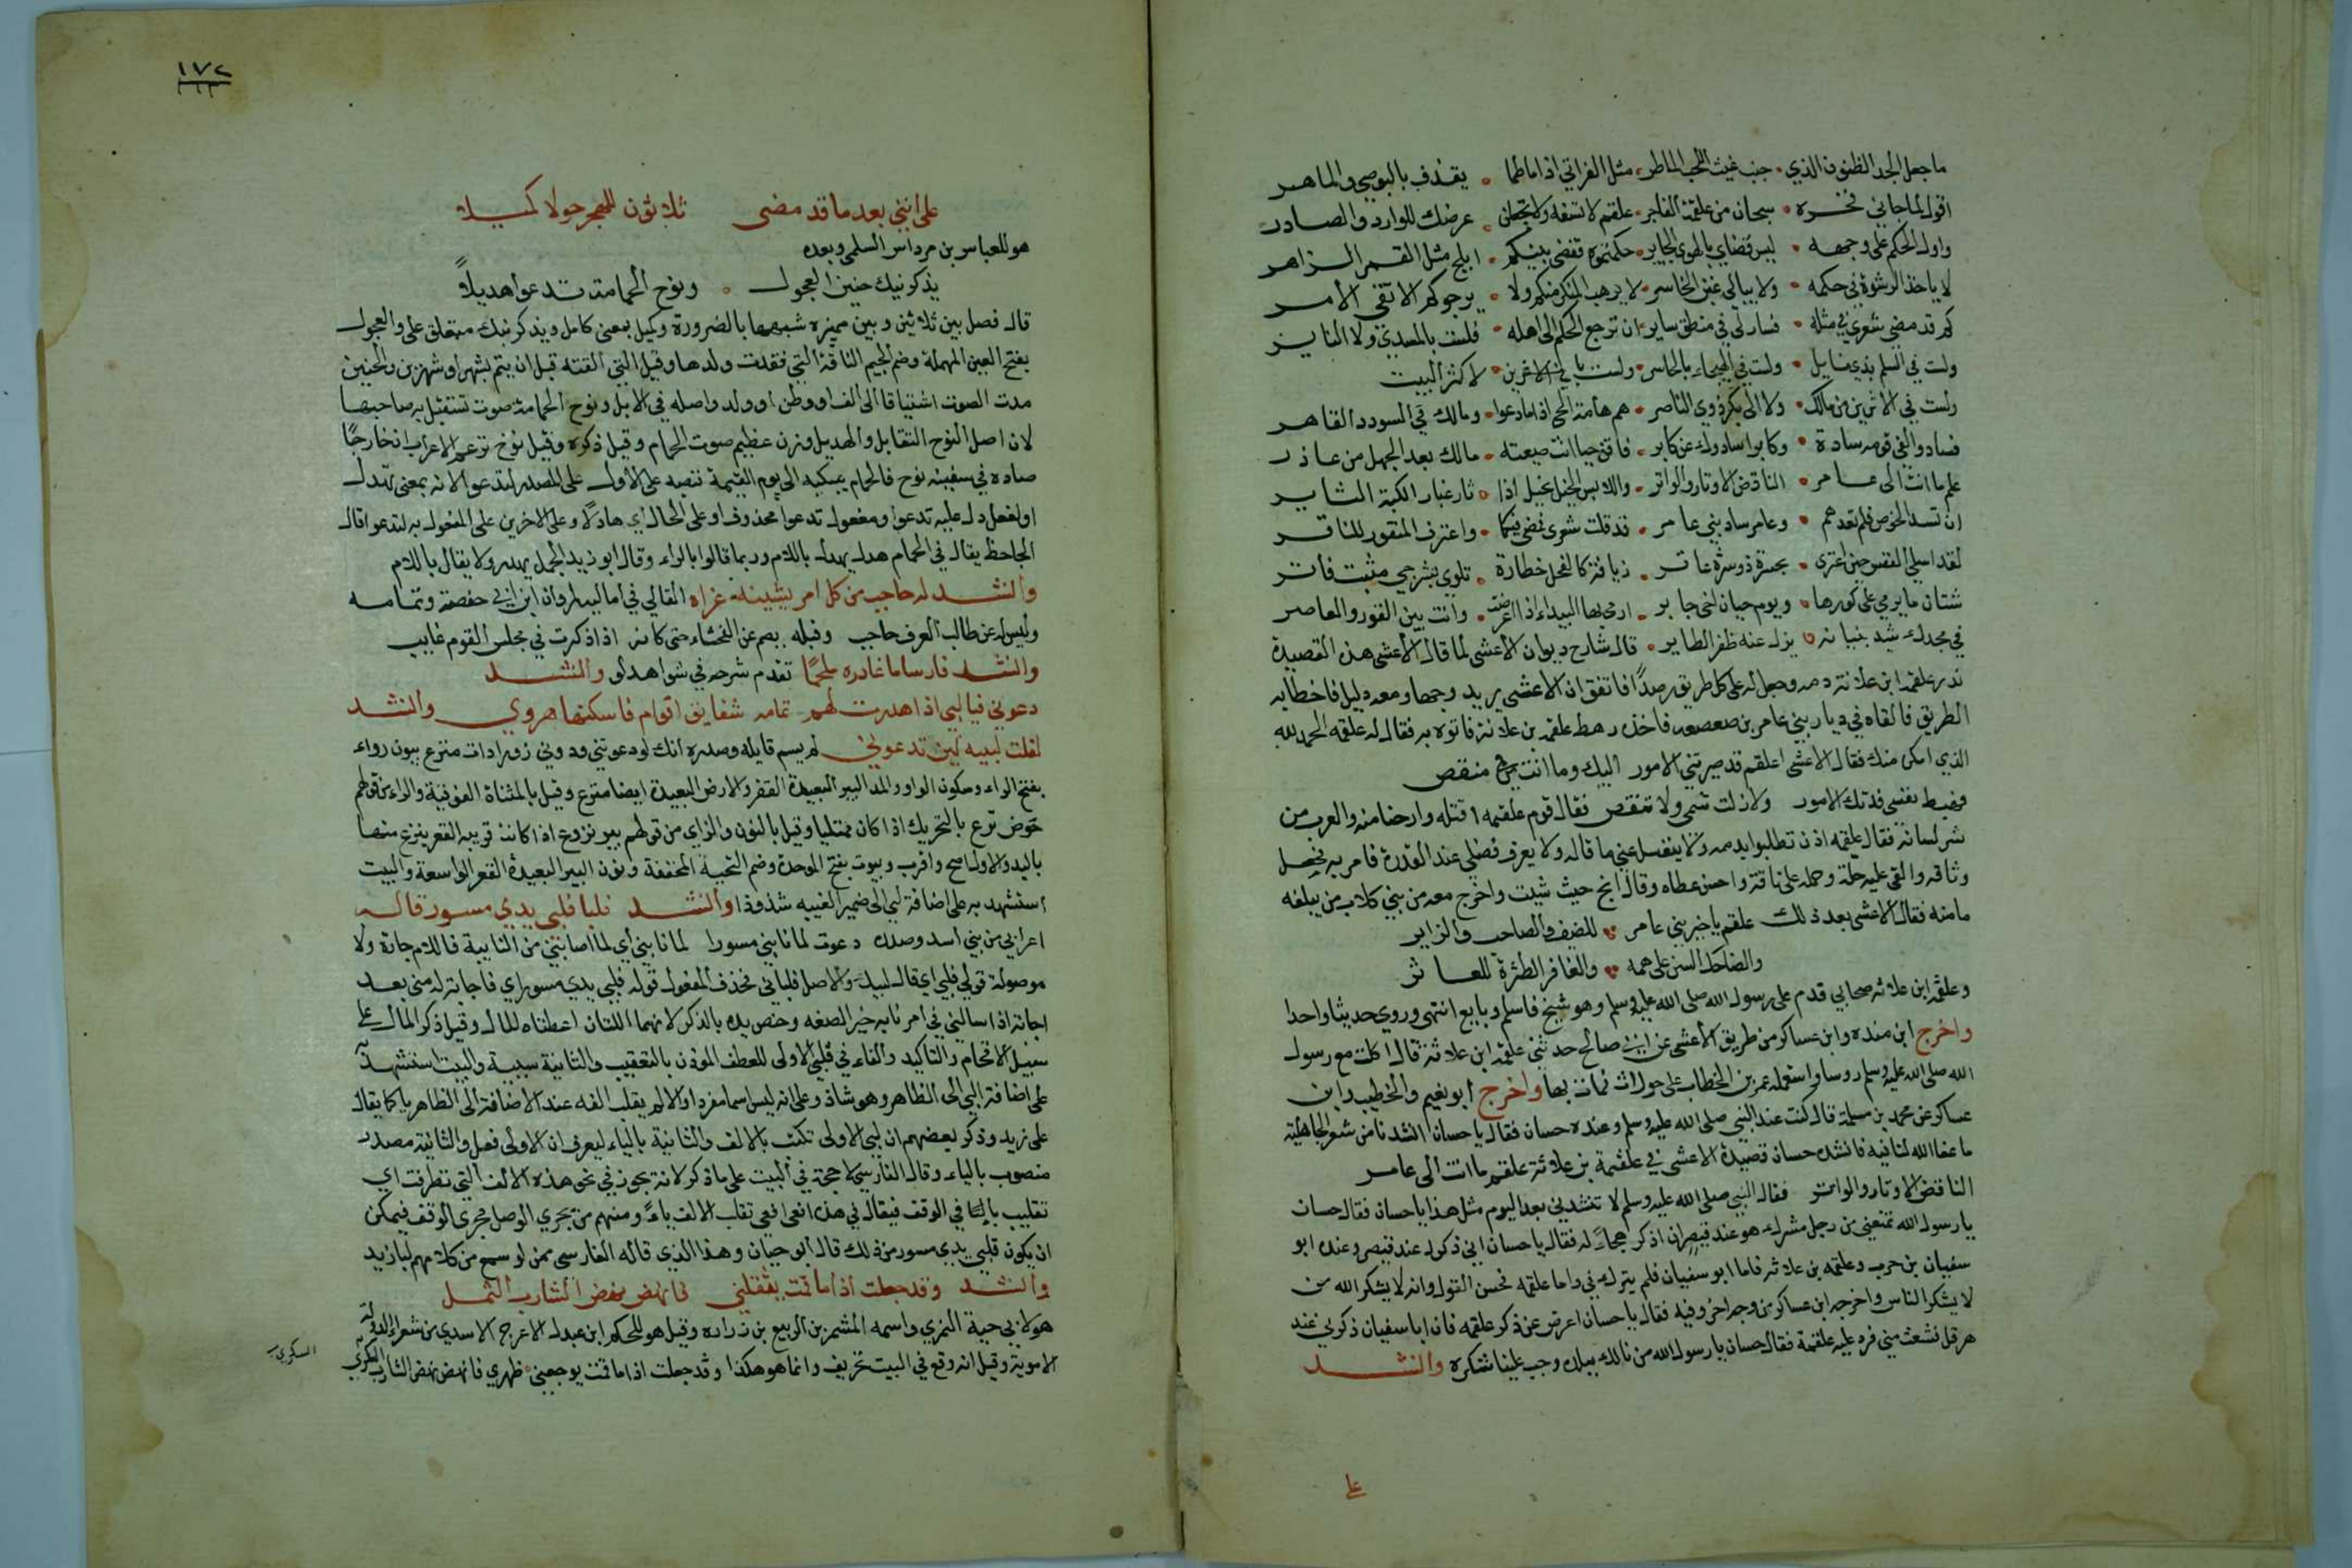 ما جعل الجد الظنون الذي • جنب غيث اللجب الماطر • مثل الفراتي اذا ما طما • يقذف بالبوصي والماهر
اقول لما جاني فخره • سبحان من علقمة الفاجر • علقم لا تسفه ولا تجعلن • عرضك للوارد والصادر
واول الحكم على وجهه • ليس قضاي بالهوى الجاير • حكمتموه فقضى بينكم • ابلج مثل القمر الزاهر
لا ياخذ الرشوة في حكمه • ولا يبالي غبن الخاسر • لا يرهب المنكر منكم ولا • يرجوكم الا تقى الامر
كم قد مضى شعري في مثله • فسار لي في منطق ساير • ان ترجع الحكم الى اهله • فلست بالمسدي ولا الناير
ولست في السلم بذي نايل • ولست في الهيجاء بالجاسر • ولست بالاكثرين • لاكثر البيت
ولست في الاثرين من مالك • ولا الى بكر ذوي الناصر • هم هامة الحي اذا ما دعوا • ومالك في السودد القاهر
فساد والفى قومه سادة • وكابرا سادوك عن كابر • فاقن حيا انت ضيعته • مالك بعد الجهل من عاذر
علم ما انت الى عامر • الناقض الاوتار والواتر • واللابس الخيل بخيل اذا • ثار غبار الكبة الثاير
ان تسد الحوص فلم تعدهم • وعامر ساد بني عامر • قد قلت شعري فمضى فيكما • واعترف المنقور للناقر
لقد اسلي الهم حين اعترى • بجسرة دوسرة عاقر • زيافة كالفحل خطارة • تلوي بشرخي ميت فاتر
شتان ما يومي على كورها • ويوم حيان اخي جابر • ارمي بها البيداء اذا اعرضت • وانت بين القرو والعاصر
في مجدل شيد بنيانه • يزل عنه ظفر الطاير • قال شارح ديوان الاعشى لما قال الاعشى هذه القصيدة
نذر علقمة ابن علاثة دمه وجعل له على كل طريق رصدا فاتفق ان الاعشى يريد وجها ومعه دليل فاخطا به
الطريق فالقاه في ديار بني عامر بن صعصعه فاخذه رهط علقمة بن علاثة فاتوه به فقال له علقمه الحمد لله
الذي امكن منك فقال الاعشى اعلقم قد صيرتني الامور اليك وما انت لي منقص
فهب لي نفسي فدتك الامور ولا زلت تنمي ولا تنقص فقال قوم علقمه اقتله وارحنا منه والعرب من
شر لسانه فقال علقمه اذن تطلبوا بدمه ولا ينغسل عني ما قاله ولا يعرف فضلي عند القدرة فامر به فحل
وثاقه والقى عليه حلة وحمله على ناقة واحسن عطاه وقال انج حيث شيت واخرج معه من بني كلاب من يبلغه
مامنه فقال الاعشى بعد ذلك علقم يا خير بني عامر للضيف والصاحب والزاير
والضاحك السن على همه والغافر العثرة للعاثر
وعلقمه ابن علاثه صحابي قدم على رسول الله صلى الله عليه وسلم وهو شيخ فاسلم وبايع انتهى وروى حديثا واحدا
واخرج ابن منده وابن عساكر من طريق الاعشى عن ابي صالح حدثني علقمه ابن علاثة قال اكلت مع رسول
الله صلى الله عليه وسلم روسا واستعمله عمر بن الخطاب على حوران فمات بها واخرج ابو نعيم والخطيب وابن
عساكر عن محمد بن مسلمة قال كنت عند النبي صلى الله عليه وسلم وعنده حسان فقال يا حسان انشدنا من شعر الجاهلية
ما عفا الله لنا فيه فانشده حسان قصيدة الاعشى في علقمة بن علاثة علقم ما انت الى عامر
الناقض الاوتار والواتر فقال النبي صلى الله عليه وسلم لا تنشدني بعد اليوم مثل هذا يا حسان فقال حسان
يا رسول الله تمنعني من رجل مشرك هو عند قيصر ان اذكر هجاء له فقال يا حسان اني ذكرت عند قيصر وعنده ابو
سفيان بن حرب وعلقمه بن علاثه فاما ابو سفيان فلم يترك في واما علقمه فحسن القول وانه لا يشكر الله من
لا يشكر الناس واخرجه ابن عساكر من وجه اخر وفيه فقال يا حسان اعرض عن ذكر علقمه فان ابا سفيان ذكرني عند
هرقل فشعث مني فرد عليه علقمة فقال حسان يا رسول الله من نالك بيده وجب علينا شكره وانشد
على
١٧٢
على انني بعد ما قد مضى ثلاثون للهجر حولا كميلا
هو للعباس بن مرداس السلمي وبعده
يذكرنيك حنين العجول • ونوح الحمامة تدعوا هديلا
قال فصل بين ثلاثين وبين مميزه شبهها بالضرورة وكميل بمعنى كامل ويذكرنيك متعلق على والعجول
بفتح العين المهملة وضم الجيم الناقة التي فقدت ولدها وقيل التي القته قبل ان يتم بشهر او شهرين والحنين
مدت الصوت اشتياقا الى الف او وطن او ولد واصله في الابل ونوح الحمامة صوت تستقبل به صاحبها
لان اصل النوح التقابل والهديل وزن عظيم صوت الحمام وقيل ذكره وقيل فرخ تزعم الاعراب ان خارجا
صاده في سفينة نوح فالحمام يبكيه الى يوم القيمة نصبه على الاول على المصدر لتدعو الانه بمعنى تهدل
او لفعل دل عليه تدعوا ومفعول تدعوا محذوف او على الحال اي هادلا وعلى الاخرين على المفعول به لتدعوا قال
الجاحظ يقال في الحمام هدل يهدل باللام وربما قالوا بالراء وقال ابو زيد الجمل يهدر ولا يقال باللام
وانشد له حاجب من كل امر يشينه عزاه القالي في اماليه لمروان ابن ابي حفصة وتمامه
وليس له عن طالب العرف حاجب وقبله يصم عن الفحشاء حتى كانه اذا ذكرت في مجلس القوم غايب
وانشد فارسا ما غادره ملحما تقدم شرحه في شواهد لو وانشد
دعوني فيا لبي اذا هدرت لهم تمامه شقايق اقوام فاسكتها هدري وانشد
لقلت لبيه لمن يدعوني لم يسم قايله وصدره انك لو دعوتني ودوني زوراء ذات منزع بيون زوراء
بفتح الزاء وسكون الواو والمد البير البعيدة القفر والارض البعيدة ايضا مترع وقيل بالمثناة الفوقية والراء من قولهم
حوض ترع بالتحريك اذا كان ممتليا وقيل بالنون والزاي من قولهم بير نزوع اذا كانت قريبه القعر ينزع منها
باليد والاول اصح واقرب وبيون بفتح الموحدة وضم التحتية المخففة ونون البير البعيدة القعر الواسعة والبيت
استشهد به على اضافة لبي الى ضمير الغيبه شذوذا وانشد فلبا فلبي يدي مسور قاله
اعرابي من بني اسد وصدره دعوت لما نابني مسورا لما نابني اي لما اصابني من النايبة فاللام جارة ولا
موصولة قولي فلبي اي قال لبيك والاصل فلباني فحذف المفعول قوله فلبي يدي مسور اي فاجابة له مني بعد
اجابة اذا سالني في امر نابه جزا لصنعه وخص يديه بالذكر لانهما اللتان اعطتاه المال وقيل ذكر المال على
سبيل الاقحام والتاكيد والفاء في فلبي الاولى للعطف الموذن بالتعقيب والثانية سببية والبيت استشهد به
على اضافة لبي الى الظاهر وهو شاذ وعلى انه ليس اسما مفردا والا لم يقلب الفه عند الاضافة الى الظاهر يا كما يقال
على زيد وذكر بعضهم ان لبي الاولى تكتب بالالف والثانية بالياء ليعرف ان الاولى فعل والثانية مصدر
منصوب بالياء وقال الفارسي لا حجة في البيت على ما ذكر لانه يجوز في نحو هذه الالف التي تطرفت اي
تقليب يا في الوقف فيقال في هذه افعى افعي تقلب الالف ياء ومنهم من يجري الوصل مجرى الوقف فيمكن
ان يكون فلبي يدي مسور من ذلك قال ابو حيان وهذا الذي قاله الفارسي ممكن لو سمع من كلامهم لبا زيد
وانشد وقد جعلت اذا ما قمت يثقلني ثوبي فانهض نهض الشارب الثمل
هو لابي حية النمري واسمه المشمر بن الربيع بن زرارة وقيل هو للحكم ابن عبدل الاعرج الاسدي من شعراء الدولة
الاموية وقيل انه وقع في البيت تحريف وانما هو هكذا وقد جعلت اذا ما قمت يوجعني • ظهري فانهض نهض الشارب السكر
السكري